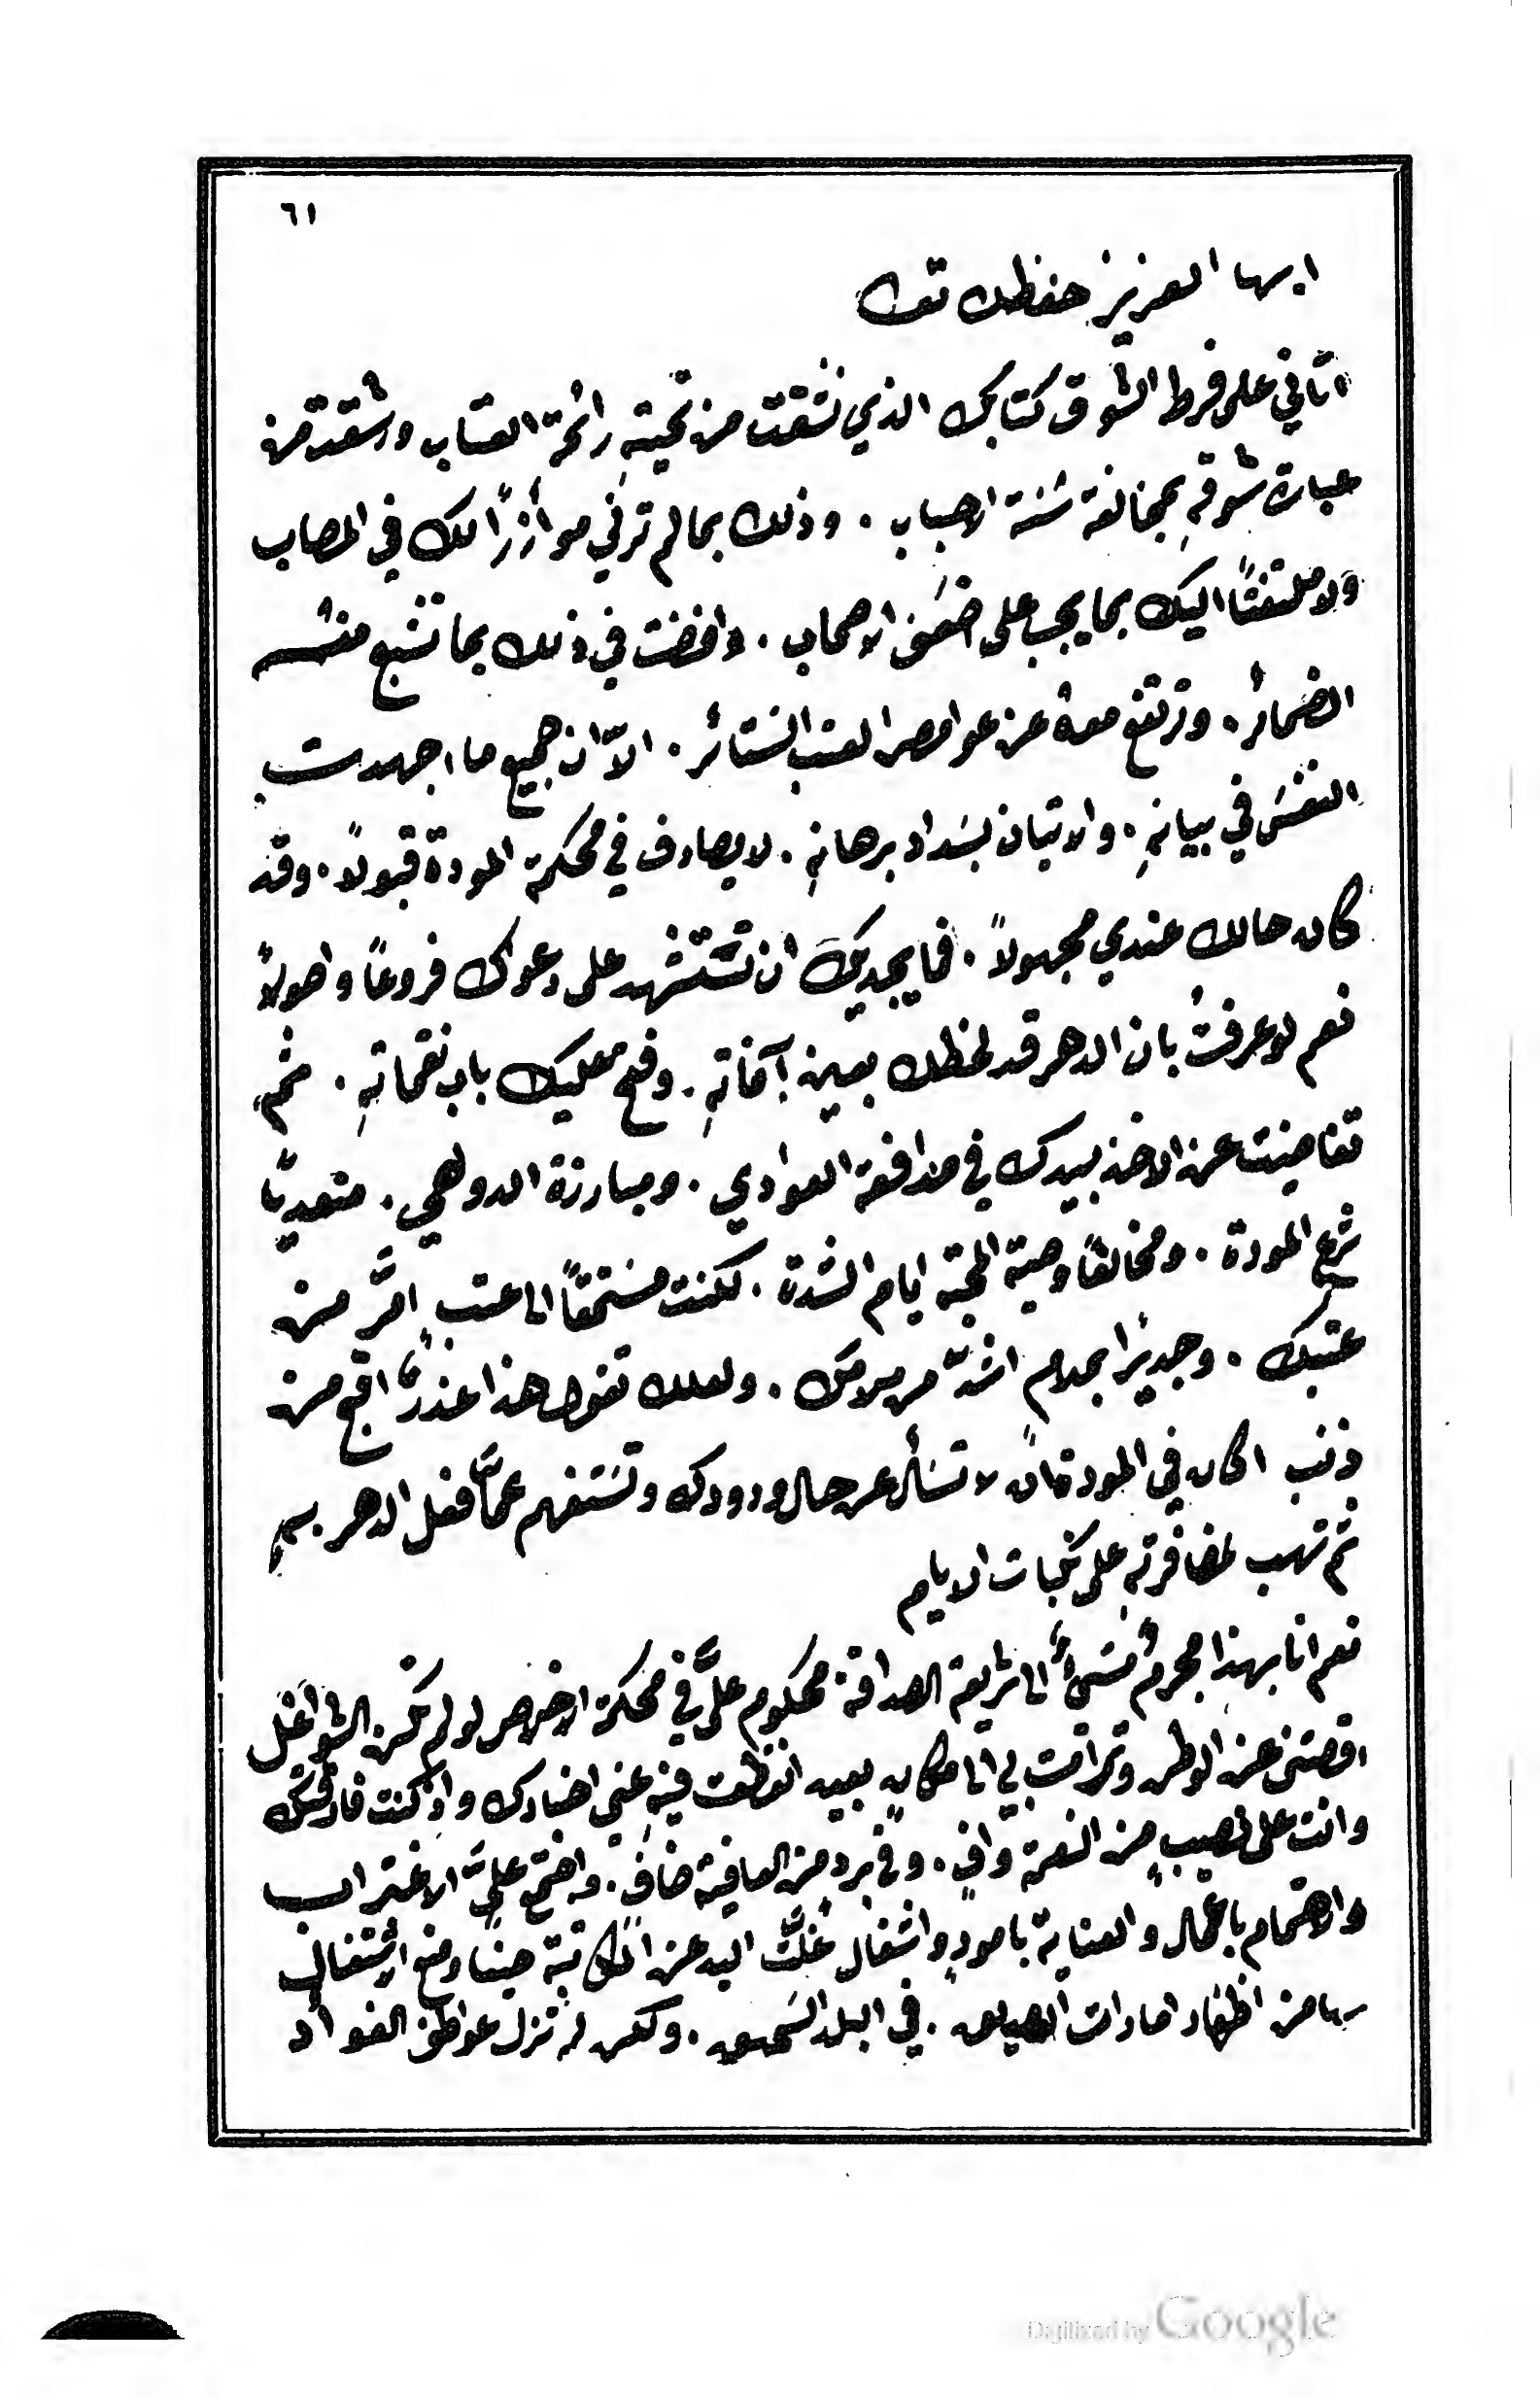 ٦١
ايها العزيز حفظك تعا
اتاني على فرط الشوق كتابك الذي نشقت من تحيتهِ رائحة العتاب ورشقت من
عبارة شوقهِ بمخالفة سُنة الاحباب . وذلك بما لم ترني موأزرًا لك في المصاب
ولا ملتفتًا اليك بما يجب على ضَمَن الاصحاب . وافضت في ذلك بما تنبع منه
الضمائر . وترتفع معهُ عن عوامص العتب الستائر . الاّ ان جميع ما اجهدت
النفسَ في بيانهِ . والاتيان بسَداد برهانهِ . لا يصادف في محكمة المودة قبولاً . وقد
كان حالك عندي مجهولاً . فما يجديك ان تستشهد على دعواك فروعًا واصولاً
نعم لو عرفتُ بان الدهر قد لحظك بعين آفاتهِ . وفتح عليك باب نقماتهِ . ثم
تغاضيت عن الاخذ بيدك في مدافعة العوادي . ومبارزة الدواهي . متعديًا
شرع المودة . ومخالفًا وصية المحبة ايام الشدة . لكنت مستحقًا الى عتبٍ امرَّ من
عتبك . وجديرًا بملامٍ اشدّ من ملامك . ولعلك تقول هذا عذرٌ اقبح من
ذنب اكان في المودة ان لا تسأل عن حال ودودك وتستفهم عمَّا فعل الدهر بهِ
ثم تهب لمضافرتهِ على نكبات الايام
نعم انا بهذا مجرمٌ مسَيءٌ الى شريعة الصداقة محكوم عليَّ في محكمة الاخلاص لو لم تكن الشواغل
اقصتني عن الوطن وترامت بي الى مكانٍ بعيد انقطعت فيهِ عني اخبارك واذ كنت فارقتك
وانت على نصيبٍ من النعمة وافٍ . وفي بردٍ من العافية ضافٍ . واجتمع عليَّ الاغتراب
والاهتمام باعمال والعناية بامورٍ واشغالٍ غلَّت اليد عن المكاتبة حينًا ومنع اشتغال
بها من اظهار امارات الصديق . في البلد السحيق . ولكن لم تزل عواطف الفواد